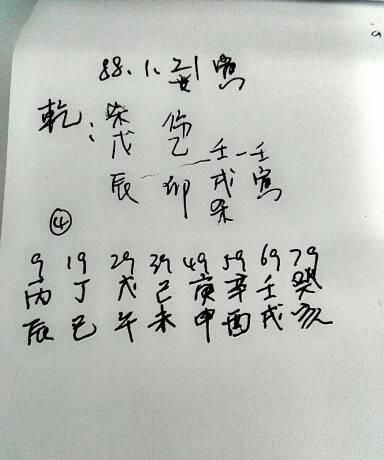 88.1.21 寅
杀 伤
乾: 戊 乙 壬 — 壬
辰 卯 戌 寅
杀
④
9 19 29 39 49 59 69 79
丙 丁 戊 己 庚 辛 壬 癸
辰 巳 午 未 申 酉 戌 亥